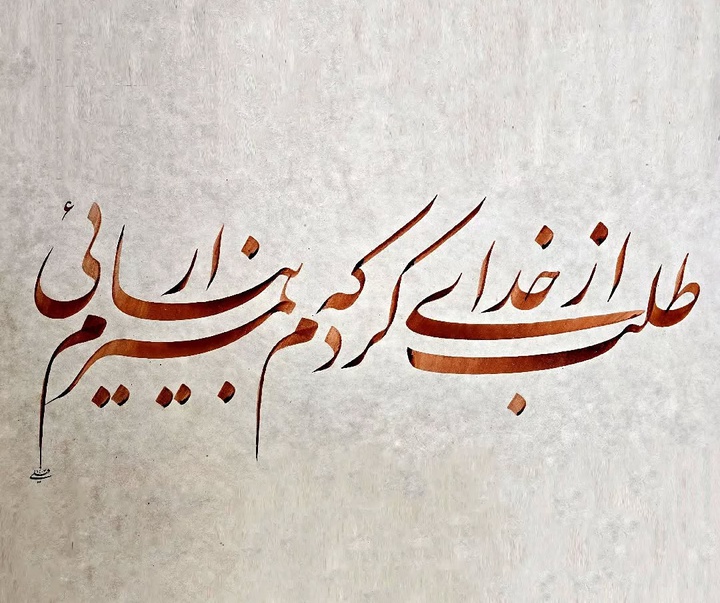 طلب از خدای کردم که بمیرم ار نیائی